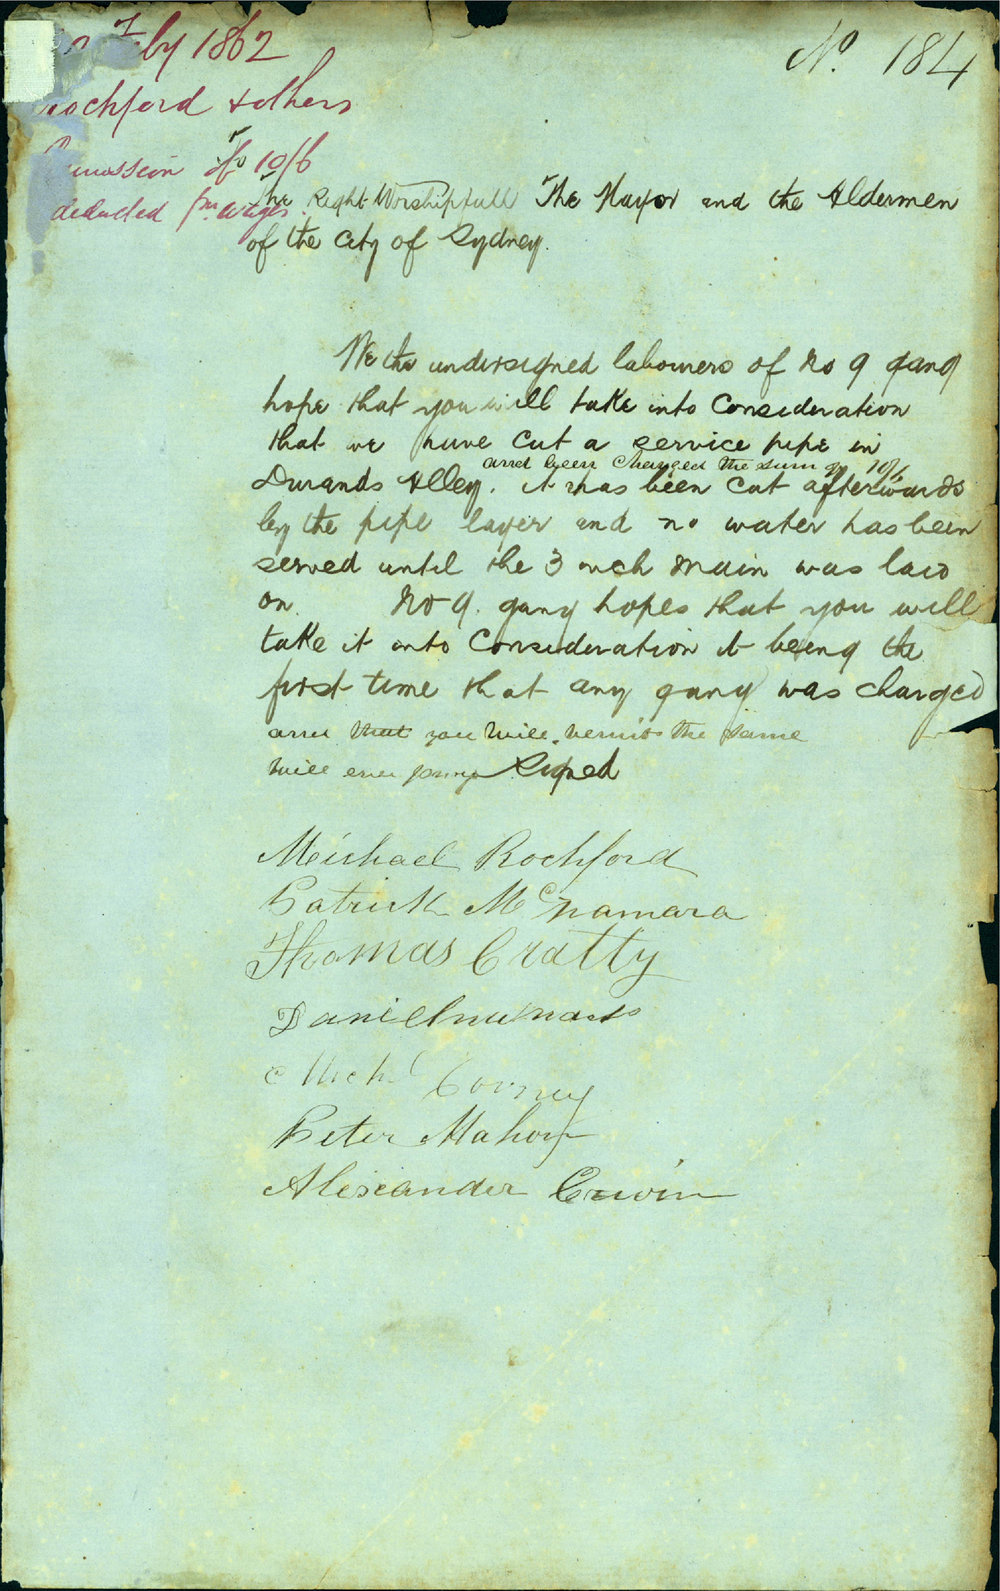 Feby 1862
No. 184
Rochford & others
Remission of 10/6
deducted fm. wages
To
The Right Worshipfull The Mayor and the Aldermen
of the City of Sydney.
We the undersigned labourers of No 9 gang
hope that you will take into Consideration
that we have Cut a service pipe in
and been Charged the sum of 10/6
Durands Alley. it has been Cut afterwards
by the pipe layer and no water has been
served until the 3 inch main was laid
on. No 9. gang hopes that you will
take it into Consideration it being the
first time that any gang was charged
and that you will remit the same
will ever pray Signed
Michael Rochford
Patrick McNamara
Thomas Cratty
Daniel
Michl
Peter Mahony
Alexander Erwin